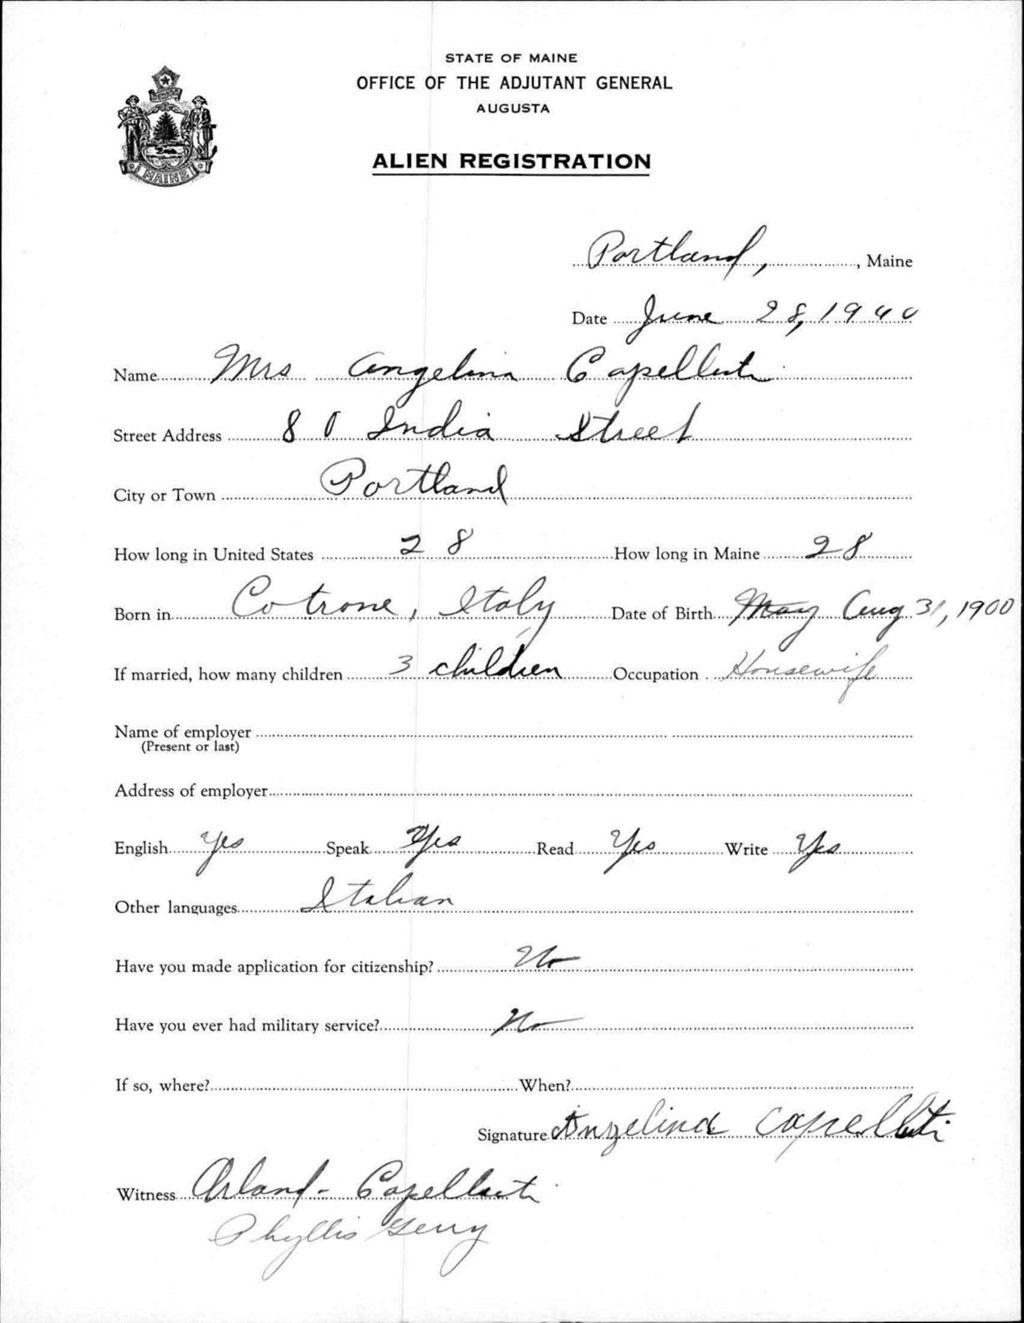 STATE OF MAINE
OFFICE OF THE ADJUTANT GENERAL
AUGUSTA
ALIEN REGISTRATION
MAINE
Portland, , Maine
Date June 28, 1940
Name Mrs Angelina Capelluti
Street Address 80 India Street
City or Town Portland
How long in United States 28 How long in Maine 28
Born in Cotrone, Italy Date of Birth May Aug 31, 1900
If married, how many children 3 children Occupation Housewife
Name of employer
(Present or last)
Address of employer
English Yes Speak Yes Read Yes Write Yes
Other languages Italian
Have you made application for citizenship? No
Have you ever had military service? No
If so, where? When?
Signature Angelina Capelluti
Witness Orland Capelluti
Phyllis Gerry